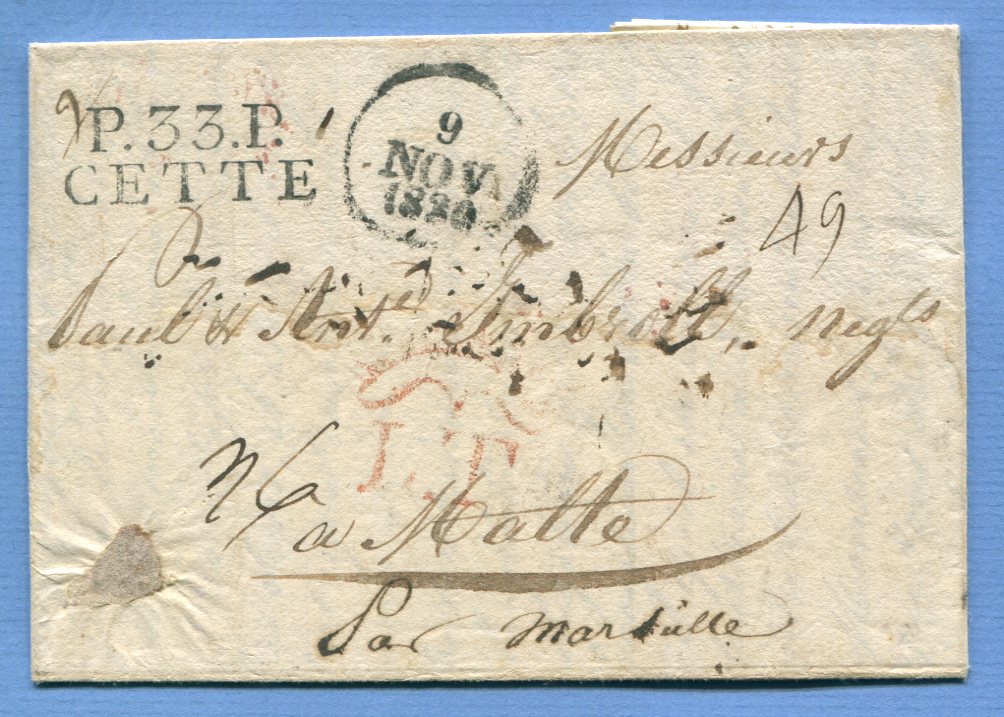 P.33.P.
CETTE
9
NOV
1828
Messieurs
49
Paul & Ant.
negts
I.T
a Malte
Par Marseille